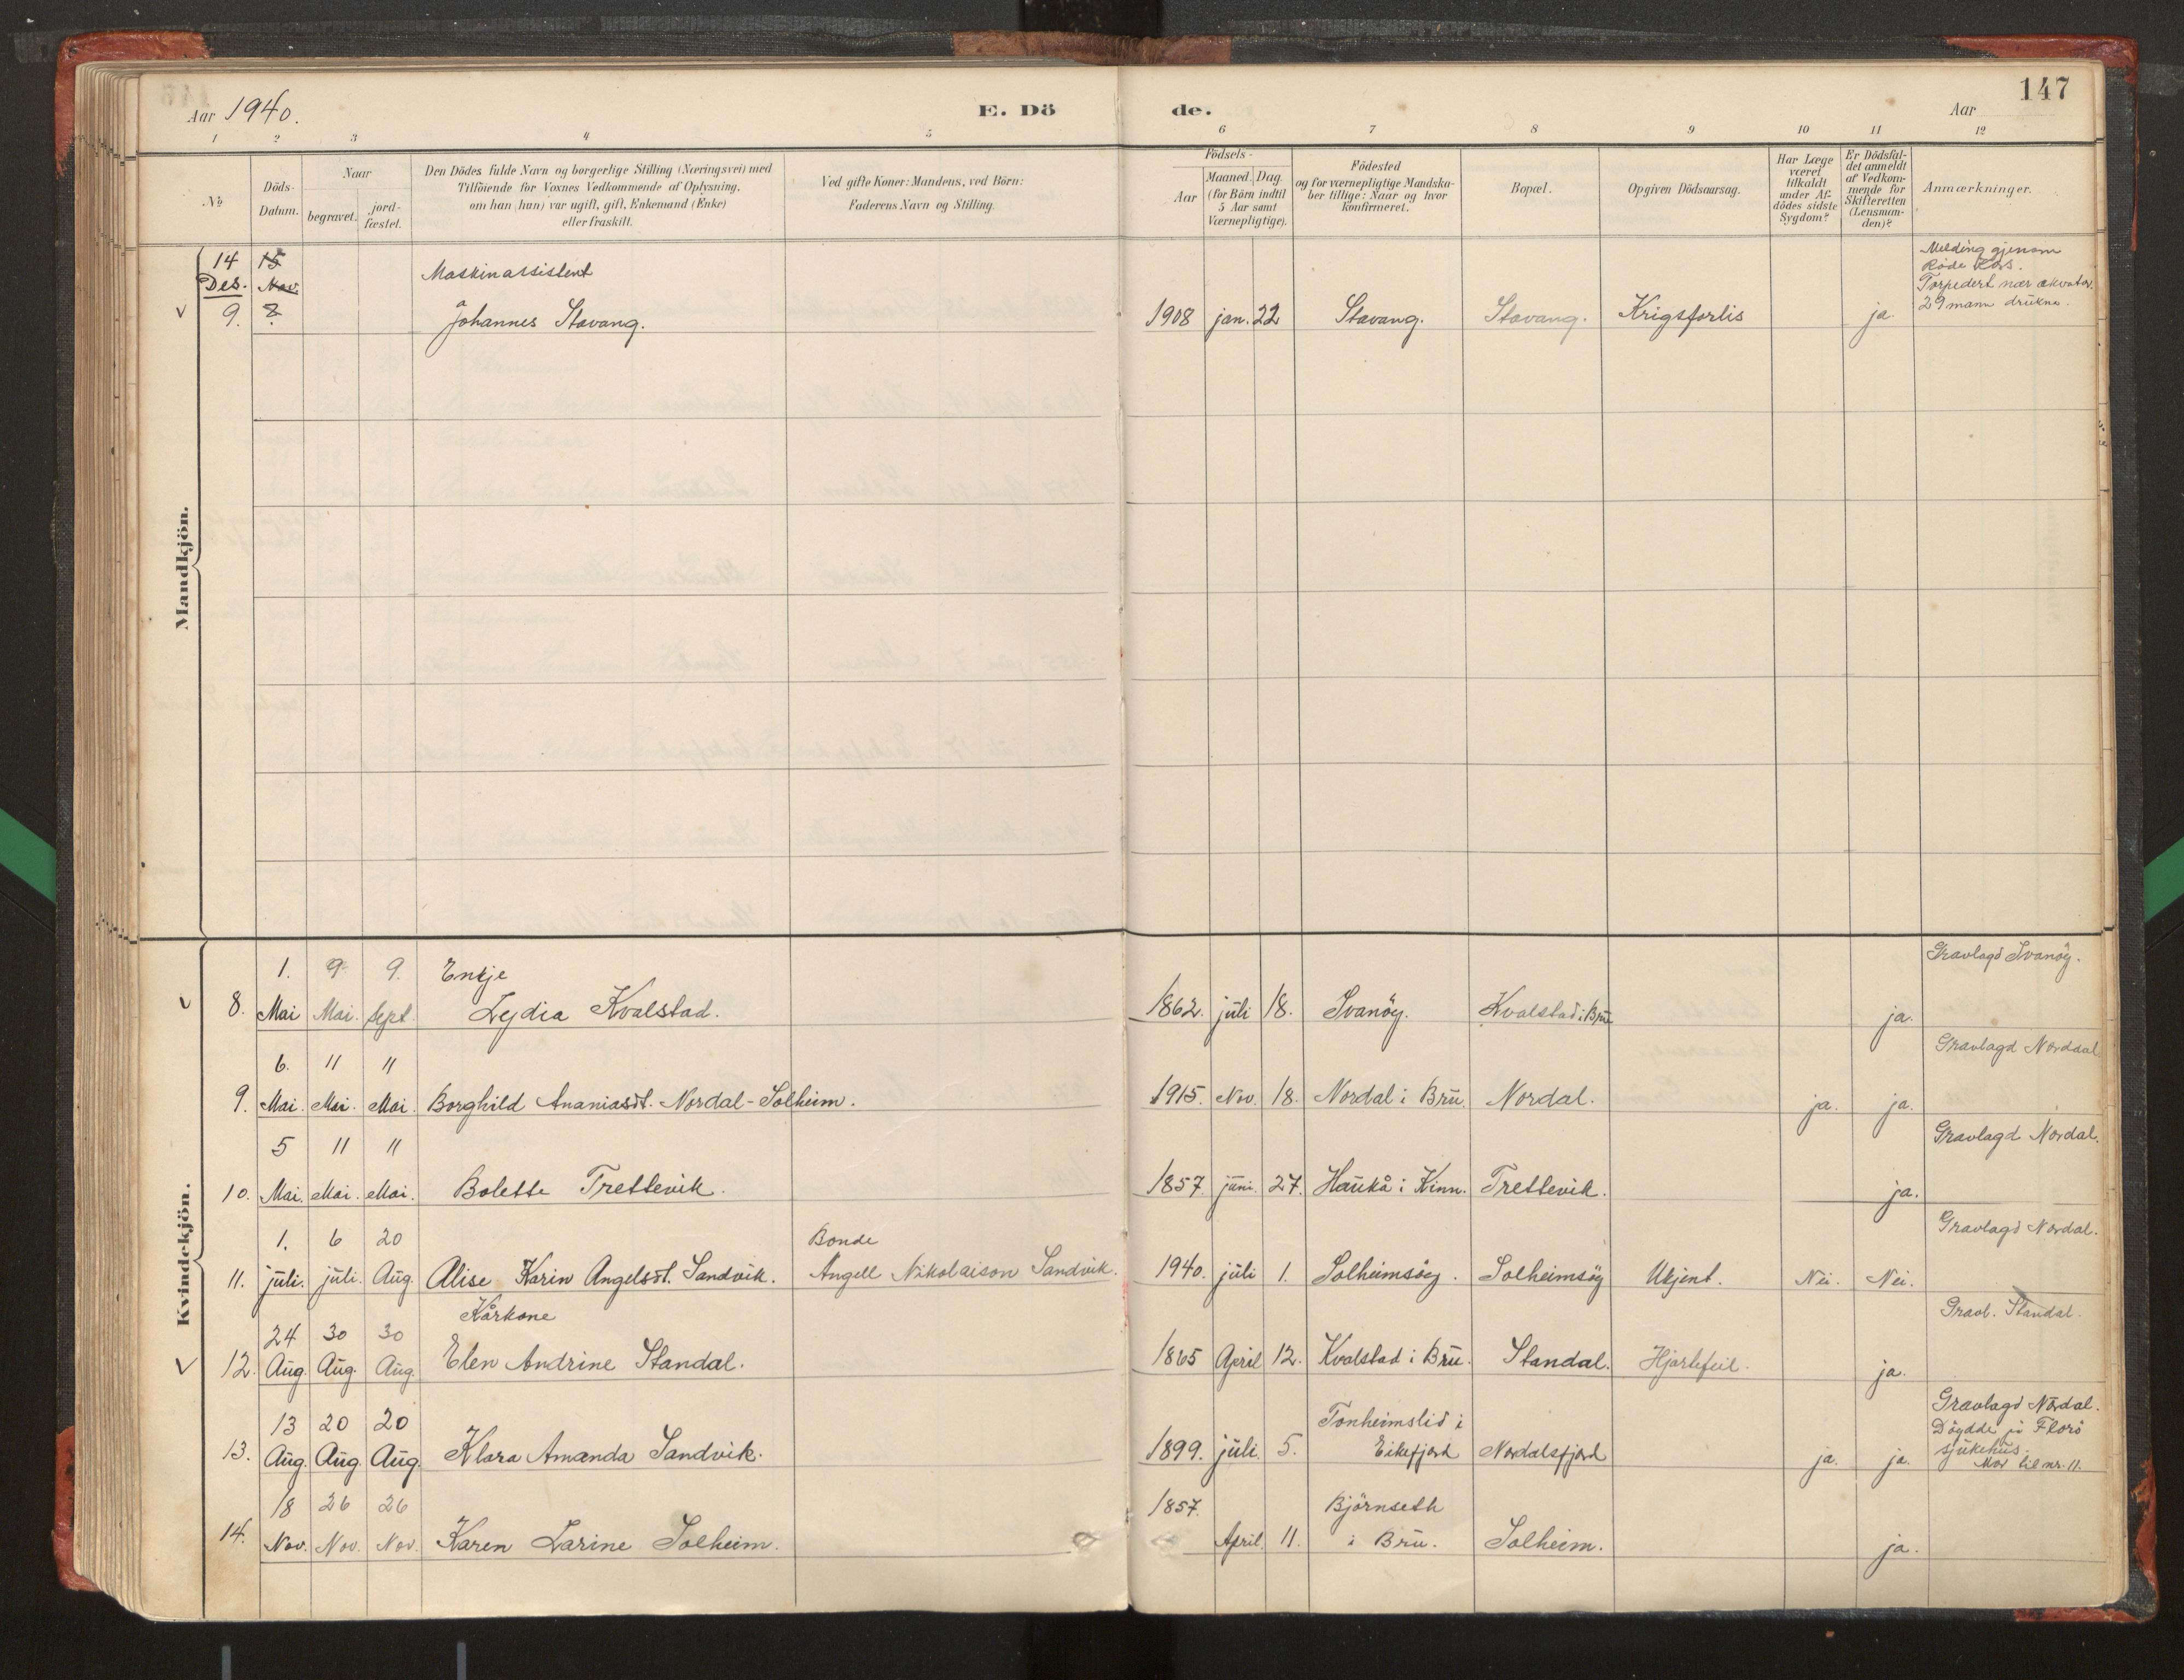 147
Aar 1940.
E. Dö
de.
Aar
1 2 3 4 5 6 7 8 9 10 11 12
No
Döds-
Datum.
Naar
begravet.
jord-
fæstet.
Den Dödes fulde Navn og borgerlige Stilling (Næringsvei) med
Tilföiende for Voxnes Vedkommende af Oplysning,
om han (hun) var ugift, gift, Enkemand (Enke)
eller fraskilt.
Ved gifte Koner: Mandens, ved Börn:
Faderens Navn og Stilling.
Födsels-
Aar
Maaned. Dag.
(for Börn indtil
5 Aar samt
Værnepligtige).
Födested
og for værnepligtige Mandska-
ber tillige: Naar og hvor
konfirmeret.
Bopæl.
Opgiven Dödsaarsag.
Har Læge
været
tilkaldt
under Af-
dödes sidste
Sygdom?
Er Dödsfal-
det anmeldt
af Vedkom-
mende for
Skifteretten
(Lensman-
den)?
Anmærkninger.
Mandkjön.
14 15
Des. Nov.
9. ?
Maskinassistent
Johannes Stavang.
1908 jan. 22 Stavang. Stavang. Krigsforlis ja.
Melding gjenom
Röde Kors.
Torpedert nær ekvator.
29 mann drukna.
Kvindekjön.
1. 9 9. Enkje
8. Mai Mai. Sept. Lydia Kvalstad. 1862. juli 18. Svanöy. Kvalstad i Bru ja.
Gravlagd Svanöy.
6. 11 11
9. Mai. Mai. Mai. Borghild Ananiasdt. Nordal-Solheim. 1915. Nov. 18. Nordal i Bru. Nordal. ja. ja.
Gravlagd Norddal
5 11 11
10. Mai. Mai. Mai. Bolette Trettevik. 1857. juni. 27. Haukå i Kinn. Trettevik. ja.
Gravlagd Nordal.
1. 6 20 Bonde
11. juli. juli. Aug. Alise Karin Angelsdt. Sandvik. Angell Nikolaison Sandvik. 1940. juli 1. Solheimsöy. Solheimsöy Ukjent. Nei. Nei.
Gravlagd Nordal.
Kårkone
24 30 30
12. Aug. Aug. Aug. Elen Andrine Standal. 1865 April 12. Kvalstad i Bru. Standal. Hjartefeil. ja.
Gravl. Standal.
13 20 20
13. Aug. Aug. Aug. Klara Amanda Sandvik. 1899. juli. 5. Tonheimslid i
Eikefjord Nordalsfjord ja. ja.
Gravlagd Nordal.
Döydde på Florö
sjukehus.
Mor til nr. 11.
18 26 26
14. Nov. Nov. Nov. Karen Larine Solheim. 1857.
April. 11. Björnseth
i Bru. Solheim. ja.